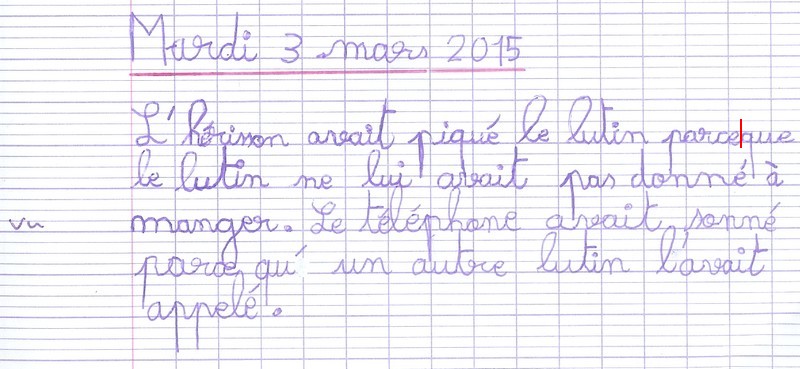 Mardi 3 mars 2015
L'hérisson avait piqué le lutin parceque
le lutin ne lui avait pas donné à
vu manger. Le téléphone avait sonné
parce qu' un autre lutin l'avait
appelé.